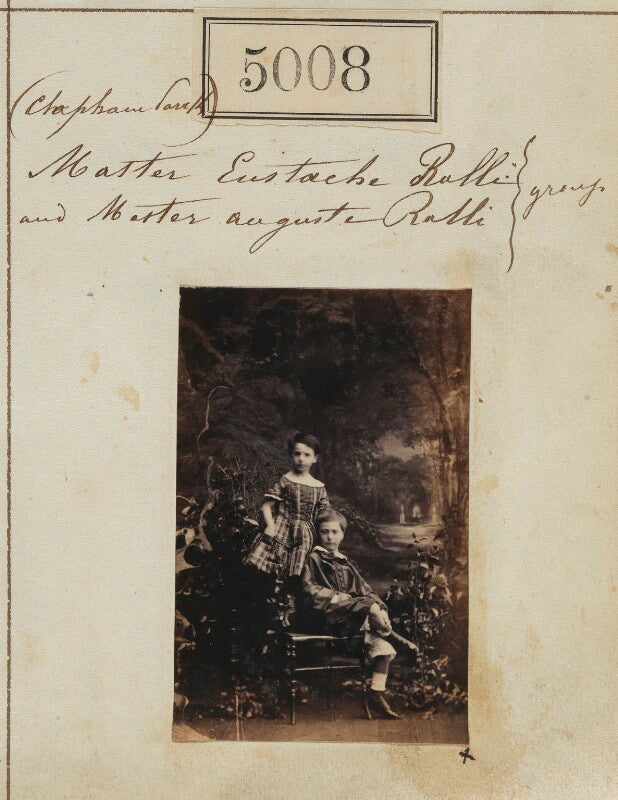 5008
(Clapham Park)
Master Eustache Ralli
and Master Auguste Ralli } group
x